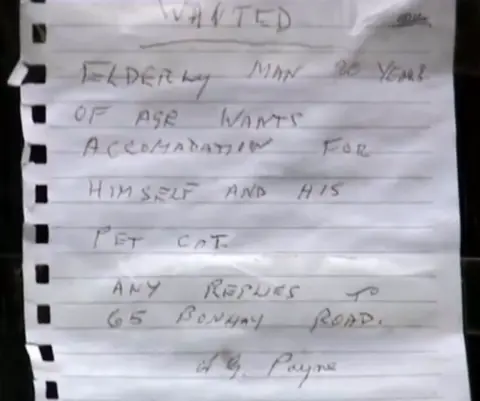 WANTED
ELDERLY MAN YEARS
OF AGE WANTS
ACCOMADATION FOR
HIMSELF AND HIS
PET CAT.
ANY REPLIES TO
65 BONHAY ROAD.
G. Payne